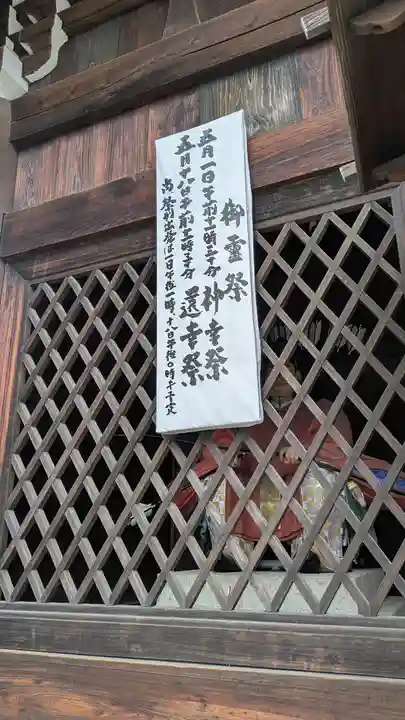 御霊祭
五月一日午前十一時三十分 神幸祭
五月十八日午前十一時三十分 還幸祭
尚祭列出発は一日午後一時、十八日午后〇時半予定